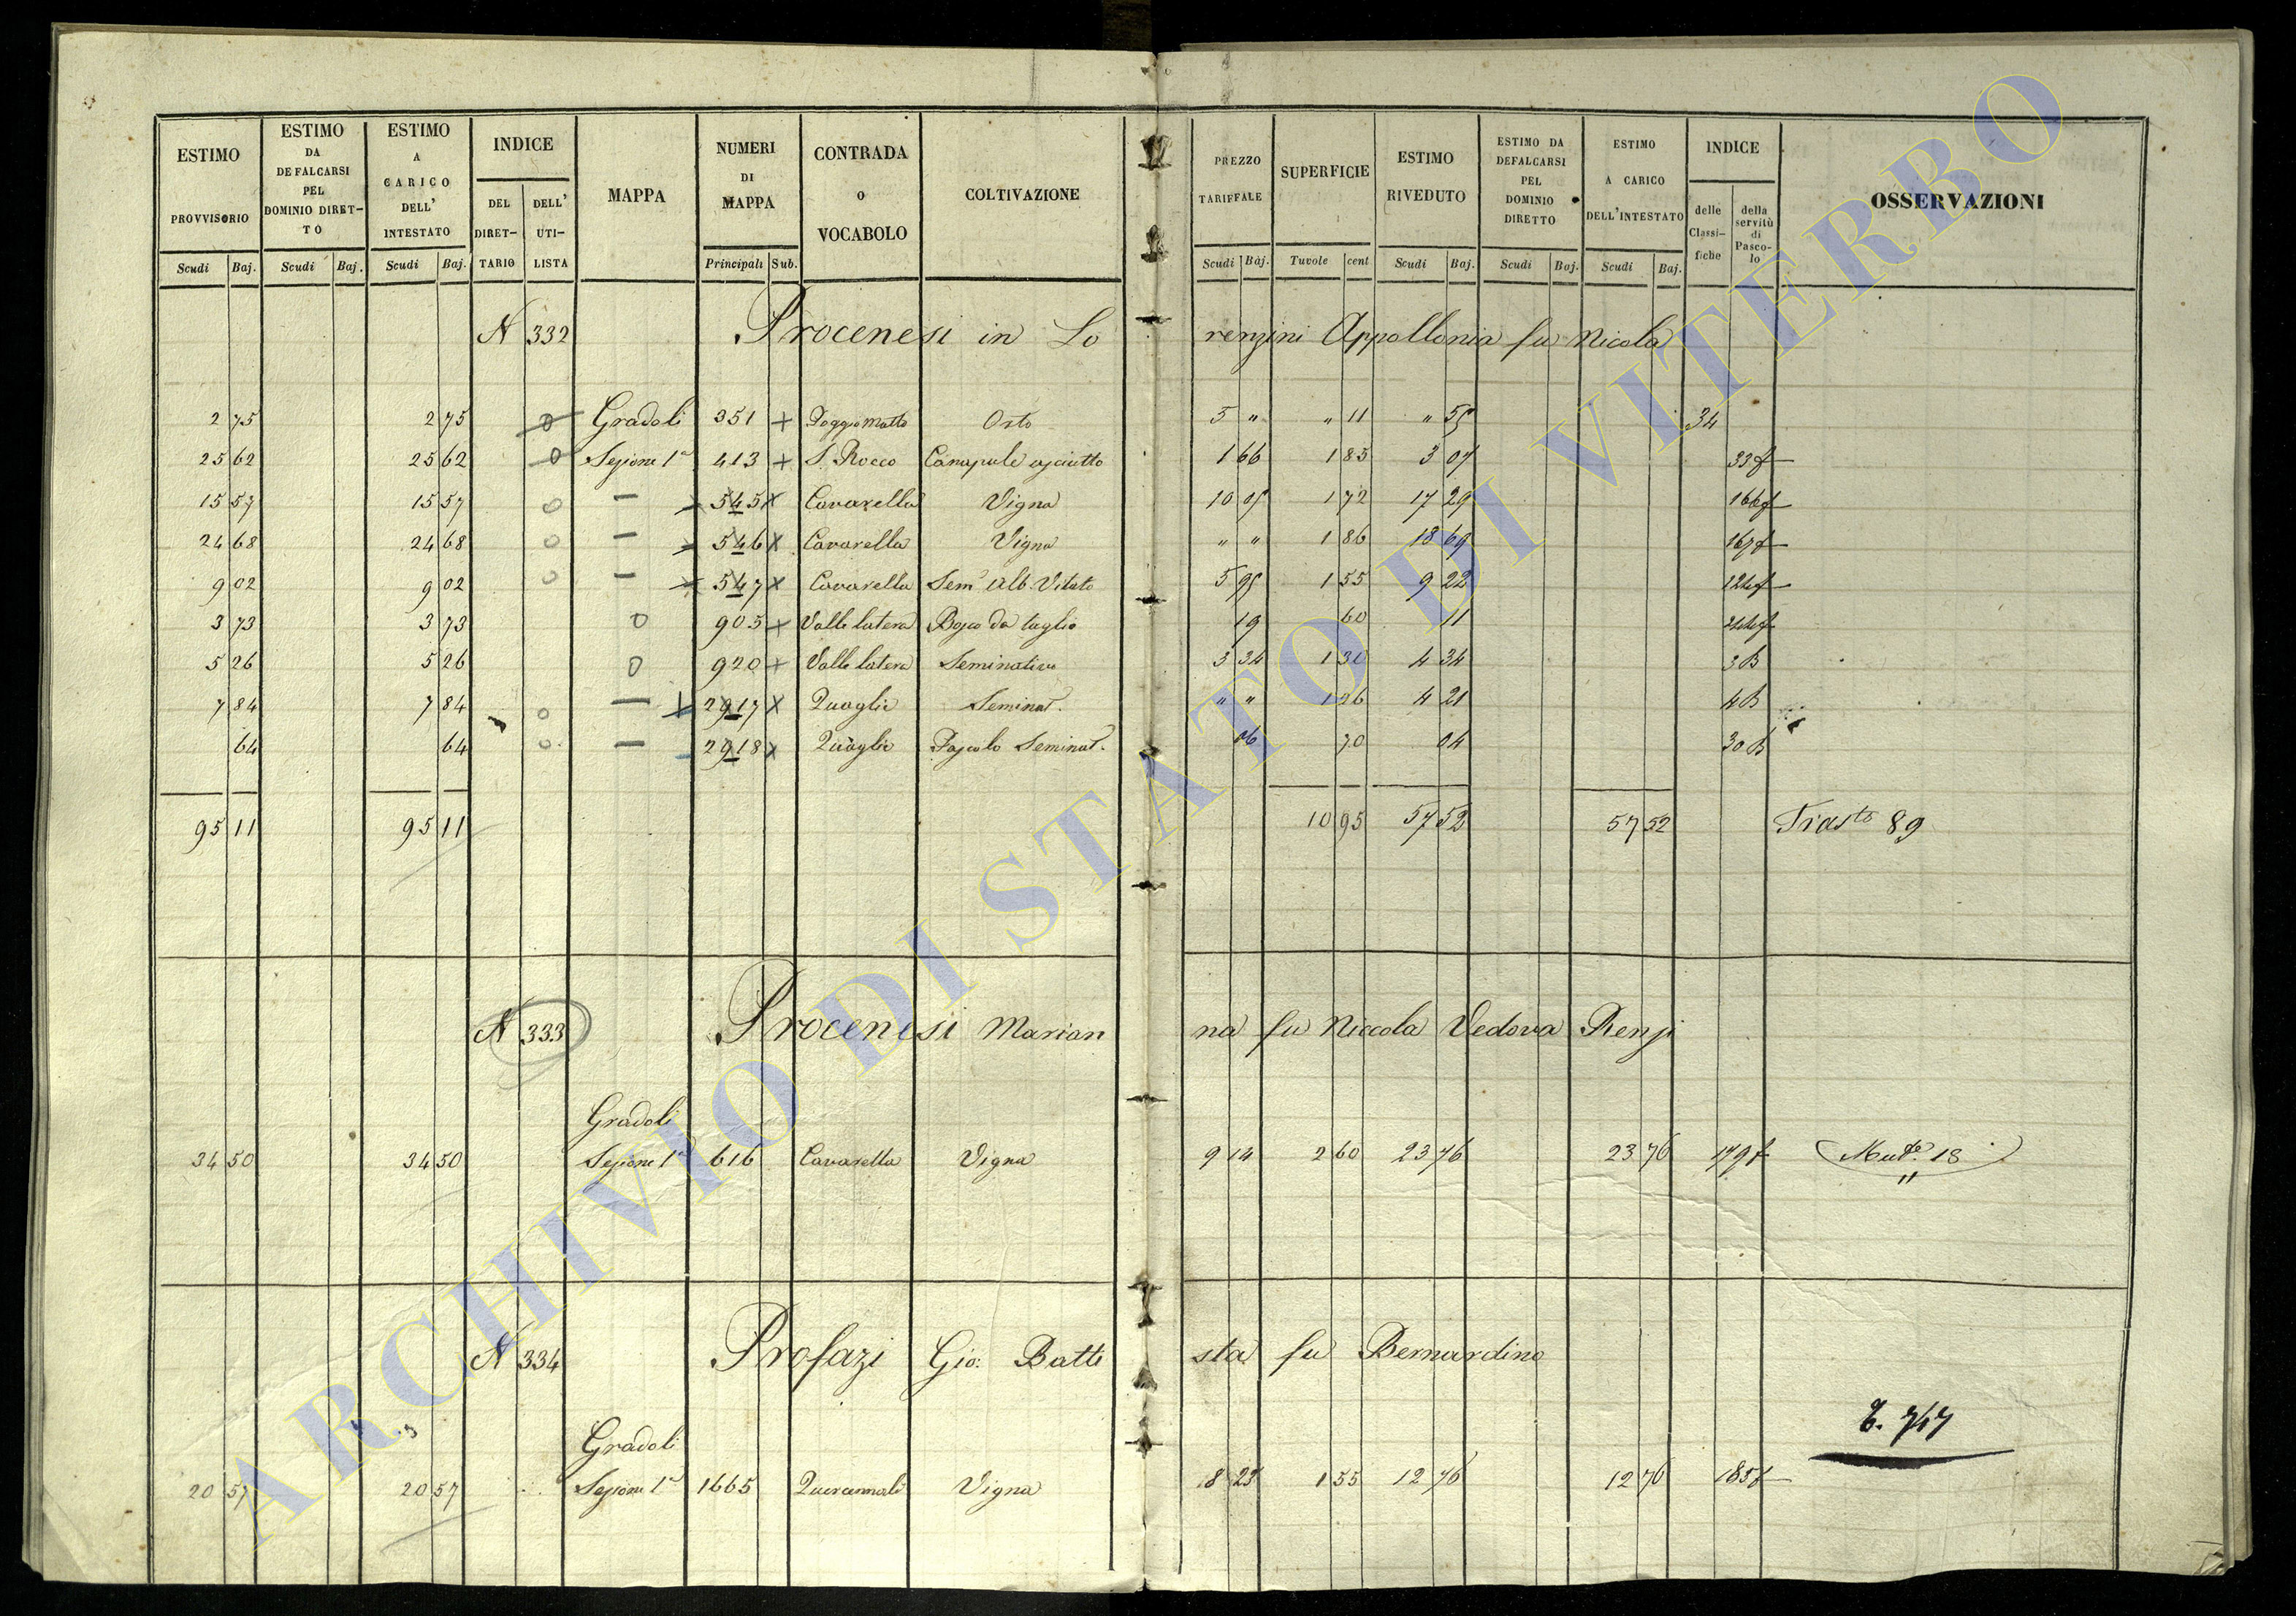 ESTIMO PROVVISORIO Scudi Baj.
ESTIMO DA DEFALCARSI PEL DOMINIO DIRET-TO Scudi Baj.
ESTIMO A CARICO DELL' INTESTATO Scudi Baj.
INDICE DEL DIRET-TARIO DELL' UTI-LISTA
MAPPA
NUMERI DI MAPPA Principali Sub.
CONTRADA o VOCABOLO
COLTIVAZIONE
PREZZO TARIFFALE Scudi Baj.
SUPERFICIE Tavole cent
ESTIMO RIVEDUTO Scudi Baj.
ESTIMO DA DEFALCARSI PEL DOMINIO DIRETTO Scudi Baj.
ESTIMO A CARICO DELL'INTESTATO Scudi Baj.
INDICE delle Classi-fiche della servitù di Pasco-lo
OSSERVAZIONI
N 332 Procenesi in Lorenzini Appollonia fu Nicola
2 75 2 75 0 Gradoli 351 + Poggio Matto Orto 5 " " 11 " 55 34
25 62 25 62 0 Sezione 1a 413 + S. Rocco Canapule asciutto 1 66 1 85 3 07 33f
15 57 15 57 0 — 545 x Cavarella Vigna 10 05 1 72 17 29 166f
24 68 24 68 0 — 546 x Cavarella Vigna " " 1 86 18 69 167f
9 02 9 02 0 — 547 x Cavarella Sem. Alb. Vitato 5 95 1 55 9 22
3 73 3 73 0 905 + Valle latera Bosco da taglio 19 60 11
5 26 5 26 0 920 + Valle latera Seminativo 3 34 1 30 4 34 3B
7 84 7 84 0 — 2917 x Quaglie Seminat. " " 1 26 4 21 4B
64 64 0 — 2918 x Quaglie Pascolo Seminat. 06 70 04 30B
95 11 95 11 10 95 57 52 57 52 Trasto 89
N 333 Procenesi Marianna fu Niccola Vedova Renzi
Gradoli
34 50 34 50 Sezione 1a 616 Cavarella Vigna 9 14 2 60 23 76 23 76 179f Muto. 18
N 334 Profazi Gio: Battista fu Bernardino
T. 747
Gradoli
20 57 20 57 Sezione 1a 1665 Vigna 8 23 1 55 12 76 12 76 185f
ARCHIVIO DI STATO DI VITERBO